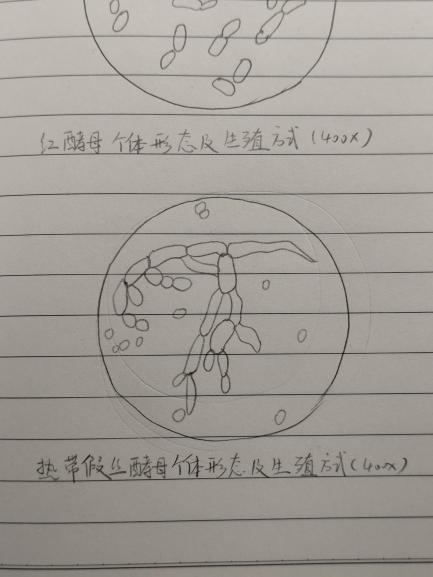 红酵母个体形态及生殖方式(400×)
热带假丝酵母个体形态及生殖方式(400×)